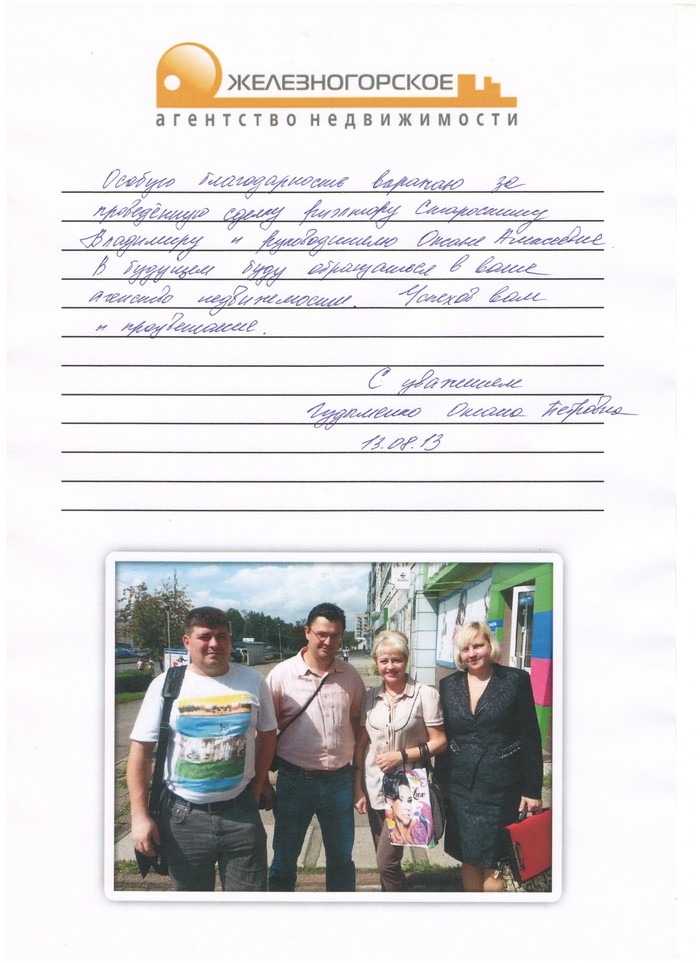 ЖЕЛЕЗНОГОРСКОЕ
агентство недвижимости
Особую благодарность выражаю за
проведённую сделку риэлтору Старосткину
Владимиру и руководителю Оксане Алексеевне.
В будущем буду обращаться в ваше
агенство недвижемости. Успехов вам
и процветание.
С уважением
Оксана Петровна
13.08.13
Lux